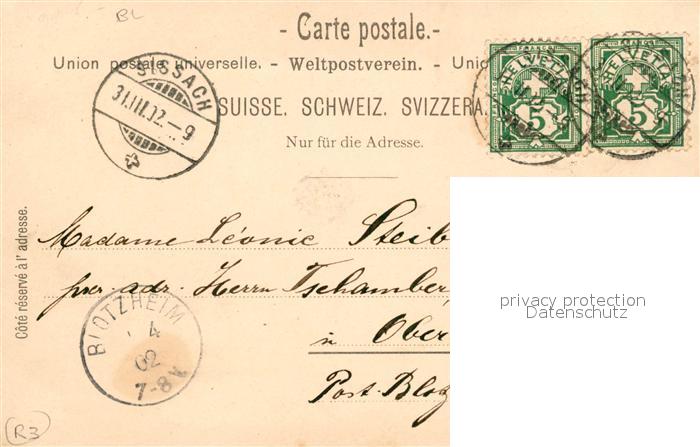 BL
- Carte postale. -
Union postale universelle. - Weltpostverein. - Unio
SUISSE. SCHWEIZ. SVIZZERA.
Nur für die Adresse.
SISSACH
31.III.02.-9
HELVETIA
5
HELVETIA
5
Côté réservé à l'adresse.
Madame Léonie Steib
per adr. Herrn Tschamber
in Ober
Post Blotz
BLOTZHEIM
4
02
7-8V
R3
privacy protection
Datenschutz